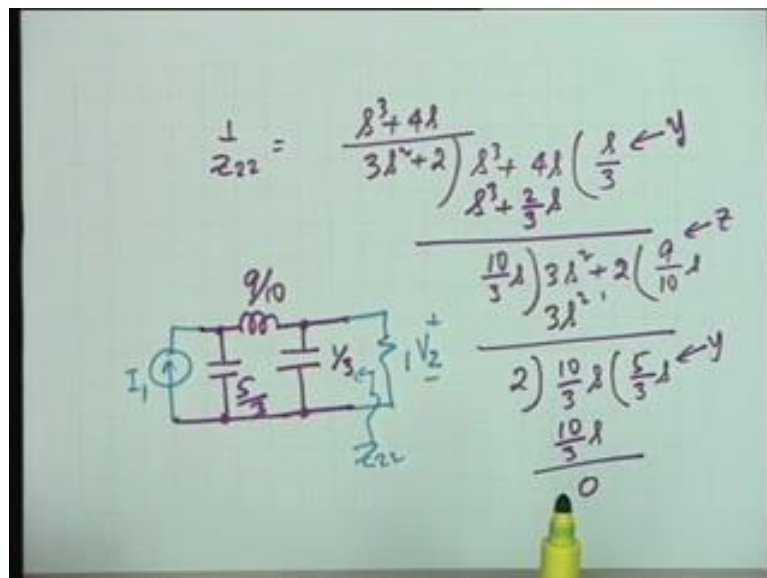 1/z22 = (s³ + 4s)/(3s² + 2) ) s³ + 4s ( s/3 ← y
s³ + 2/3 s
10/3 s ) 3s² + 2 ( 9/10 s ← z
3s²
2 ) 10/3 s ( 5/3 s ← y
10/3 s
0
9/10
I1
5/3
1/3
1
+
V2
-
Z22